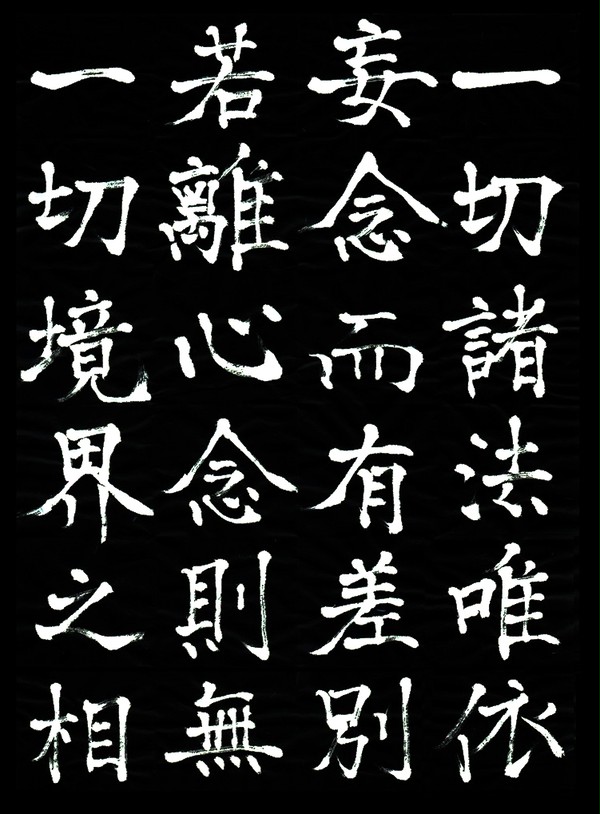 一切諸法唯依
妄念而有差別
若離心念則無
一切境界之相